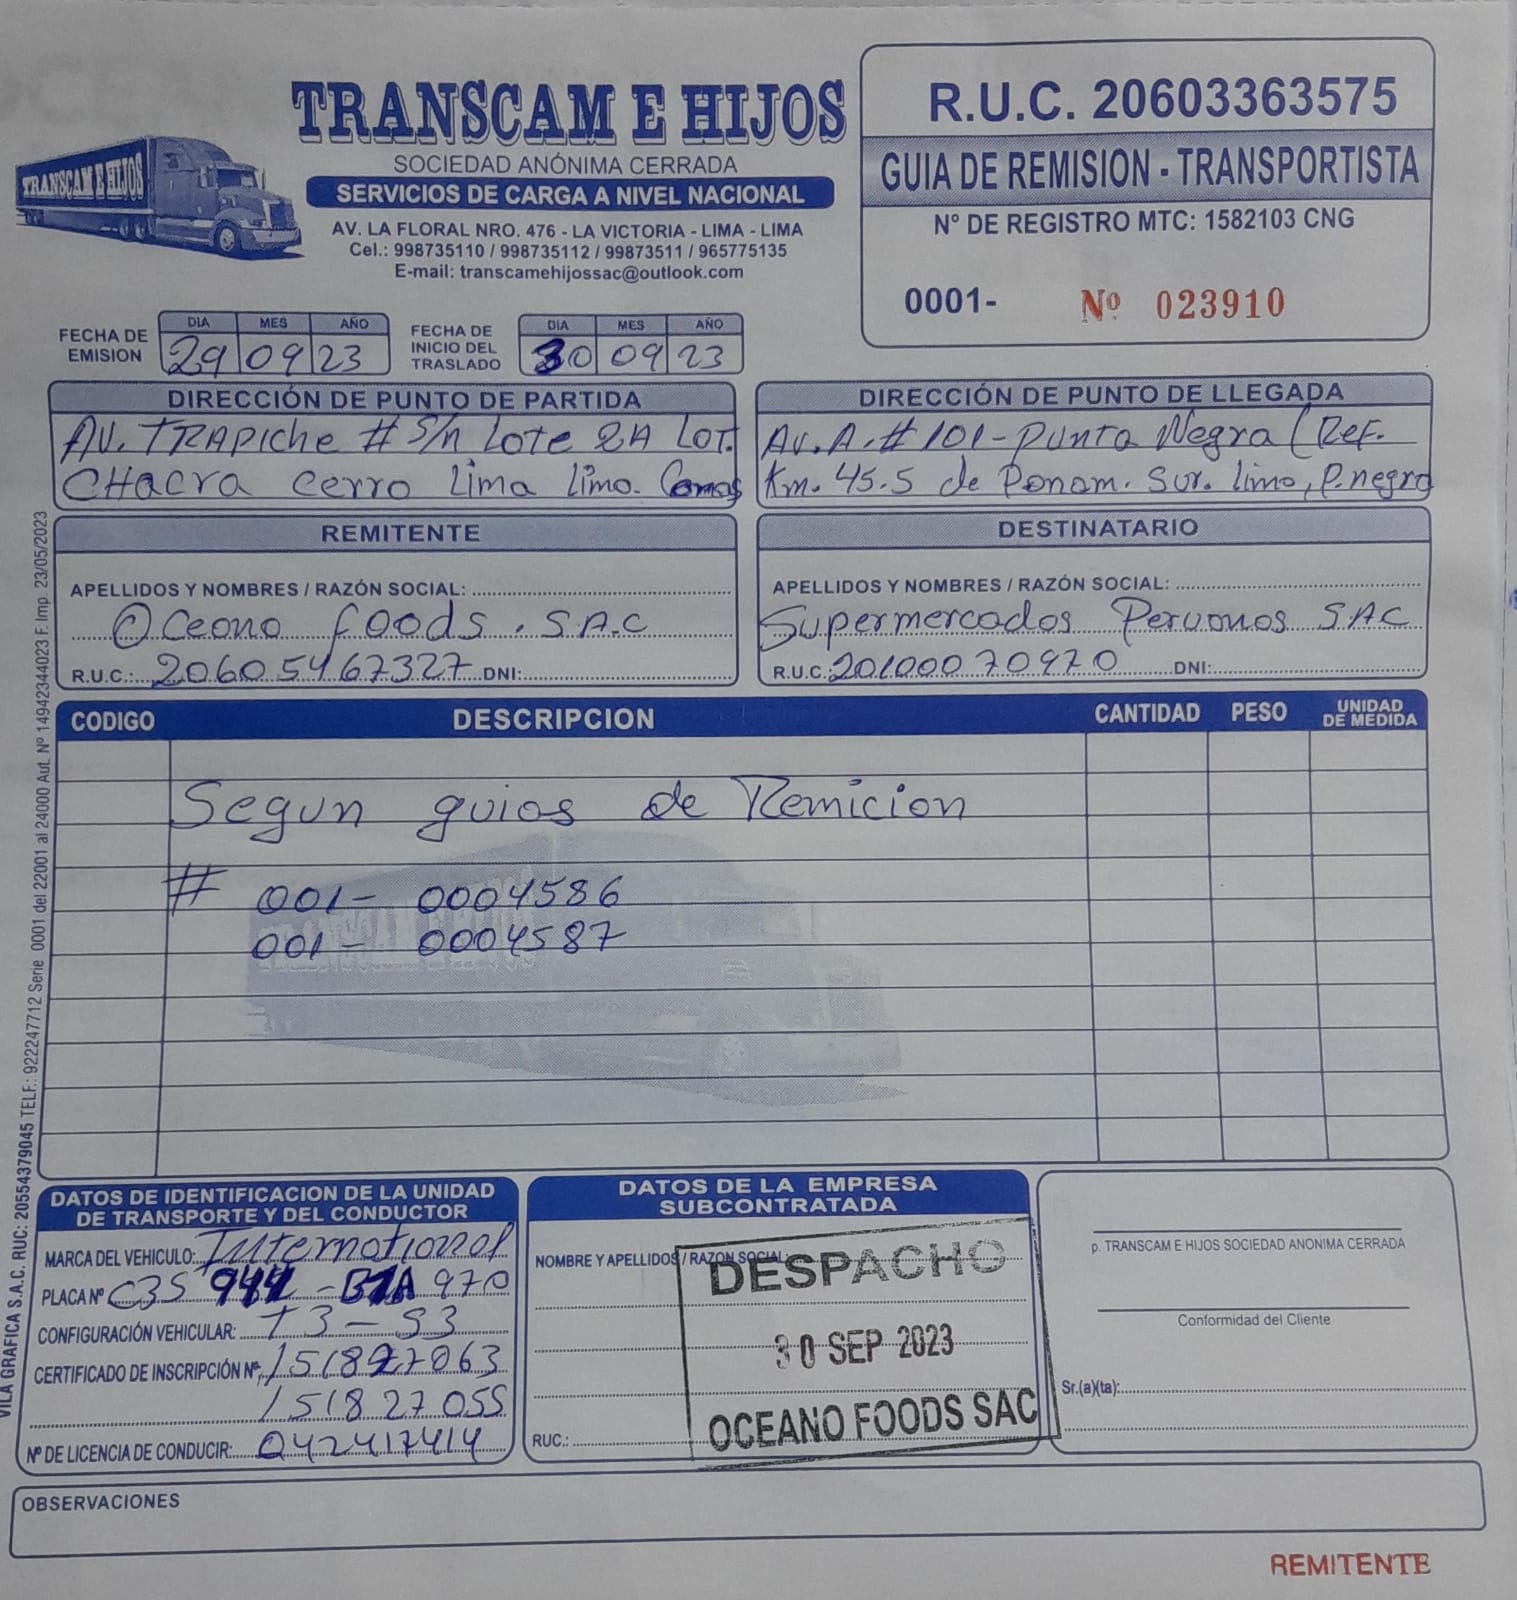 TRANSCAM E HIJOS
TRANSCAM E HIJOS
SOCIEDAD ANÓNIMA CERRADA
SERVICIOS DE CARGA A NIVEL NACIONAL
AV. LA FLORAL NRO. 476 - LA VICTORIA - LIMA - LIMA
Cel.: 998735110 / 998735112 / 99873511 / 965775135
E-mail: transcamehijossac@outlook.com
R.U.C. 20603363575
GUIA DE REMISION - TRANSPORTISTA
N° DE REGISTRO MTC: 1582103 CNG
0001- Nº 023910
FECHA DE EMISION DIA MES AÑO 29 09 23
FECHA DE INICIO DEL TRASLADO DIA MES AÑO 30 09 23
DIRECCIÓN DE PUNTO DE PARTIDA
AV. TRAPiche # S/n Lote 2A Lot.
CHacra cerro Lima Lima. Comas
DIRECCIÓN DE PUNTO DE LLEGADA
Av. A. # 101 - Punta Negra (Ref.
Km. 45.5 de Panam. Sur. Lima, P. negra
REMITENTE
APELLIDOS Y NOMBRES / RAZÓN SOCIAL:
Oceano foods. S.A.C
R.U.C.: 20605467327 DNI:
DESTINATARIO
APELLIDOS Y NOMBRES / RAZÓN SOCIAL:
Supermercados Peruanos SAC
R.U.C: 20100070970 DNI:
CODIGO DESCRIPCION CANTIDAD PESO UNIDAD DE MEDIDA
Segun guias de Remicion
# 001- 0004586
001- 0004587
DATOS DE IDENTIFICACION DE LA UNIDAD
DE TRANSPORTE Y DEL CONDUCTOR
MARCA DEL VEHICULO: International
PLACA Nº C3S 970
CONFIGURACIÓN VEHICULAR: T3 - S3
CERTIFICADO DE INSCRIPCIÓN Nº 151827063
151827055
Nº DE LICENCIA DE CONDUCIR: Q42417414
DATOS DE LA EMPRESA
SUBCONTRATADA
NOMBRE Y APELLIDOS / RAZON SOCIAL:
RUC.:
DESPACHO
30 SEP 2023
OCEANO FOODS SAC
p. TRANSCAM E HIJOS SOCIEDAD ANONIMA CERRADA
Conformidad del Cliente
Sr.(a)(ta):
OBSERVACIONES
REMITENTE
VILA GRAFICA S.A.C. RUC: 20554379045 TELF.: 922247712 Serie 0001 del 22001 al 24000 Aut. Nº 14942344023 F. Imp. 23/05/2023